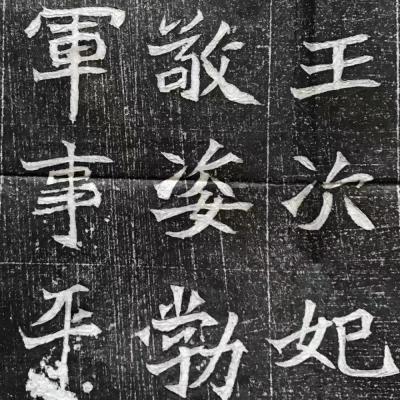 王次妃
敬姿勃
軍事平